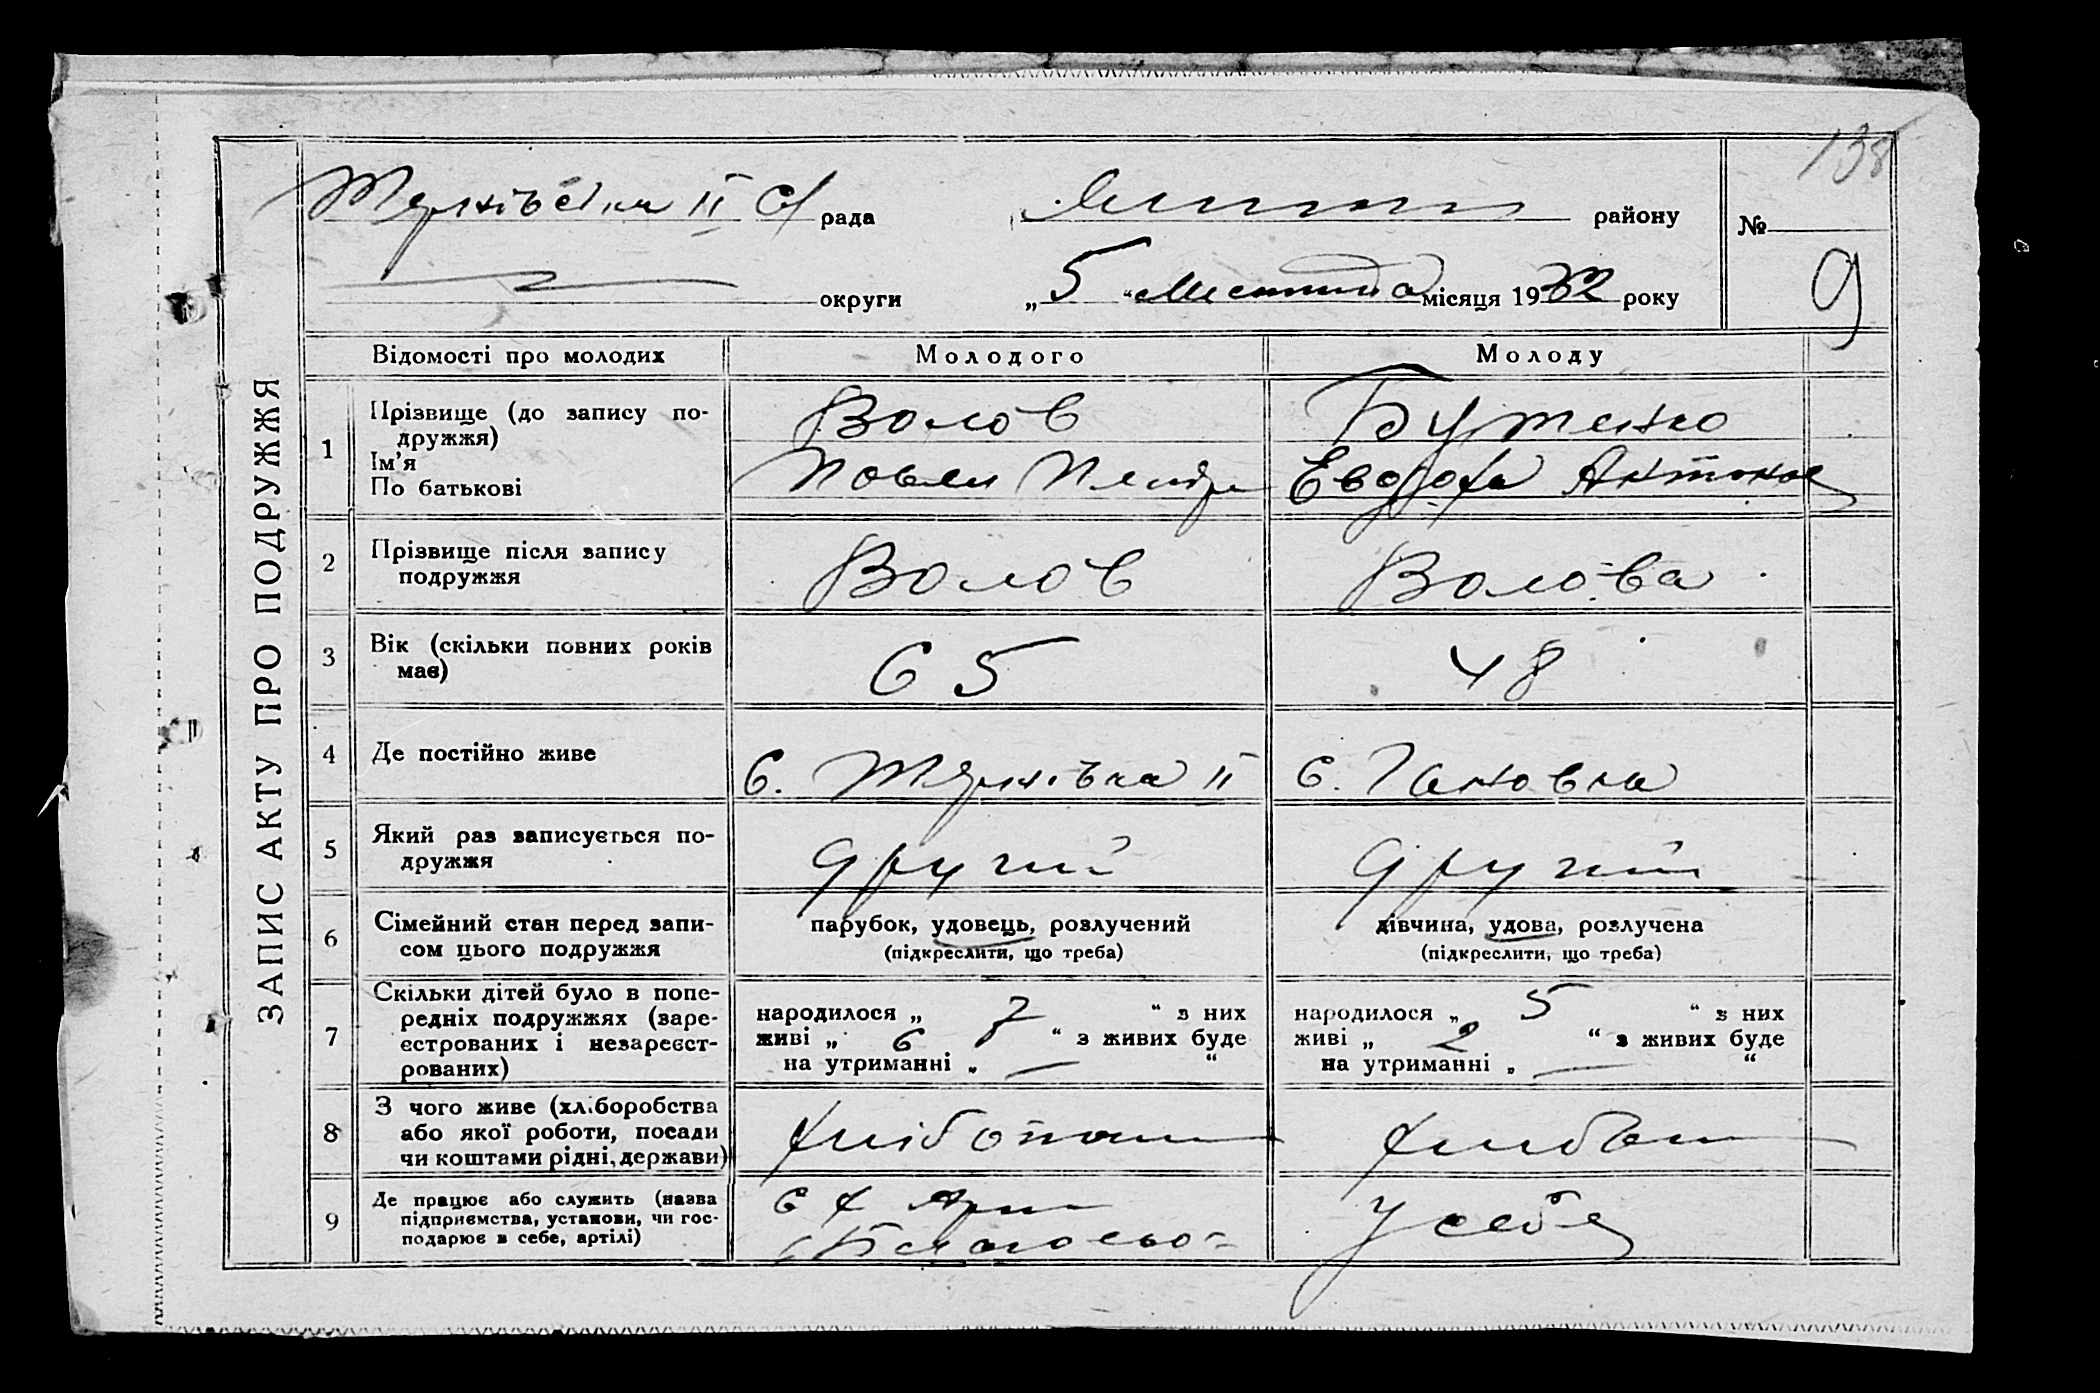 138
рада
району
№
9
округи „ 5 “ місяця 1932 року
ЗАПИС АКТУ ПРО ПОДРУЖЖЯ
Відомості про молодих
Молодого
Молоду
1
Прізвище (до запису по-
дружжя)
Ім’я
По батькові
Волов
Бутенко
Антонов
2
Прізвище після запису
подружжя
Волов
Волова
3
Вік (скільки повних років
має)
65
48
4
Де постійно живе
с. II
с.
5
Який раз записується по-
дружжя
другий
другий
6
Сімейний стан перед запи-
сом цього подружжя
парубок, удовець, розлучений
(підкреслити, що треба)
дівчина, удова, розлучена
(підкреслити, що треба)
7
Скільки дітей було в попе-
редніх подружжях (заре-
єстрованих і незареєст-
рованих)
народилося „ 7 “ з них
живі „ 6 “ з живих буде
на утриманні „ — “
народилося „ 5 “ з них
живі „ 2 “ з живих буде
на утриманні „ — “
8
З чого живе (хліборобства
або якої роботи, посади
чи коштами рідні, держави)
9
Де працює або служить (назва
підприємства, установи, чи гос-
подарює в себе, артілі)
У себе